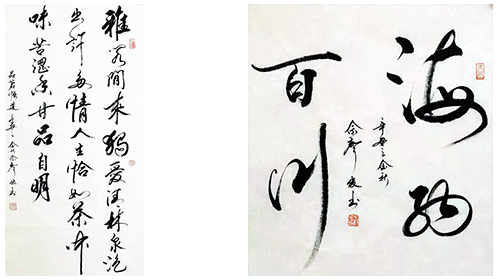 雅客閒來獨愛清林泉泡
出許多情人生恰如茶中
味苦澀香甘品自明
品茗悟道 辛丑
海纳
百川
辛丑之金秋
余 书